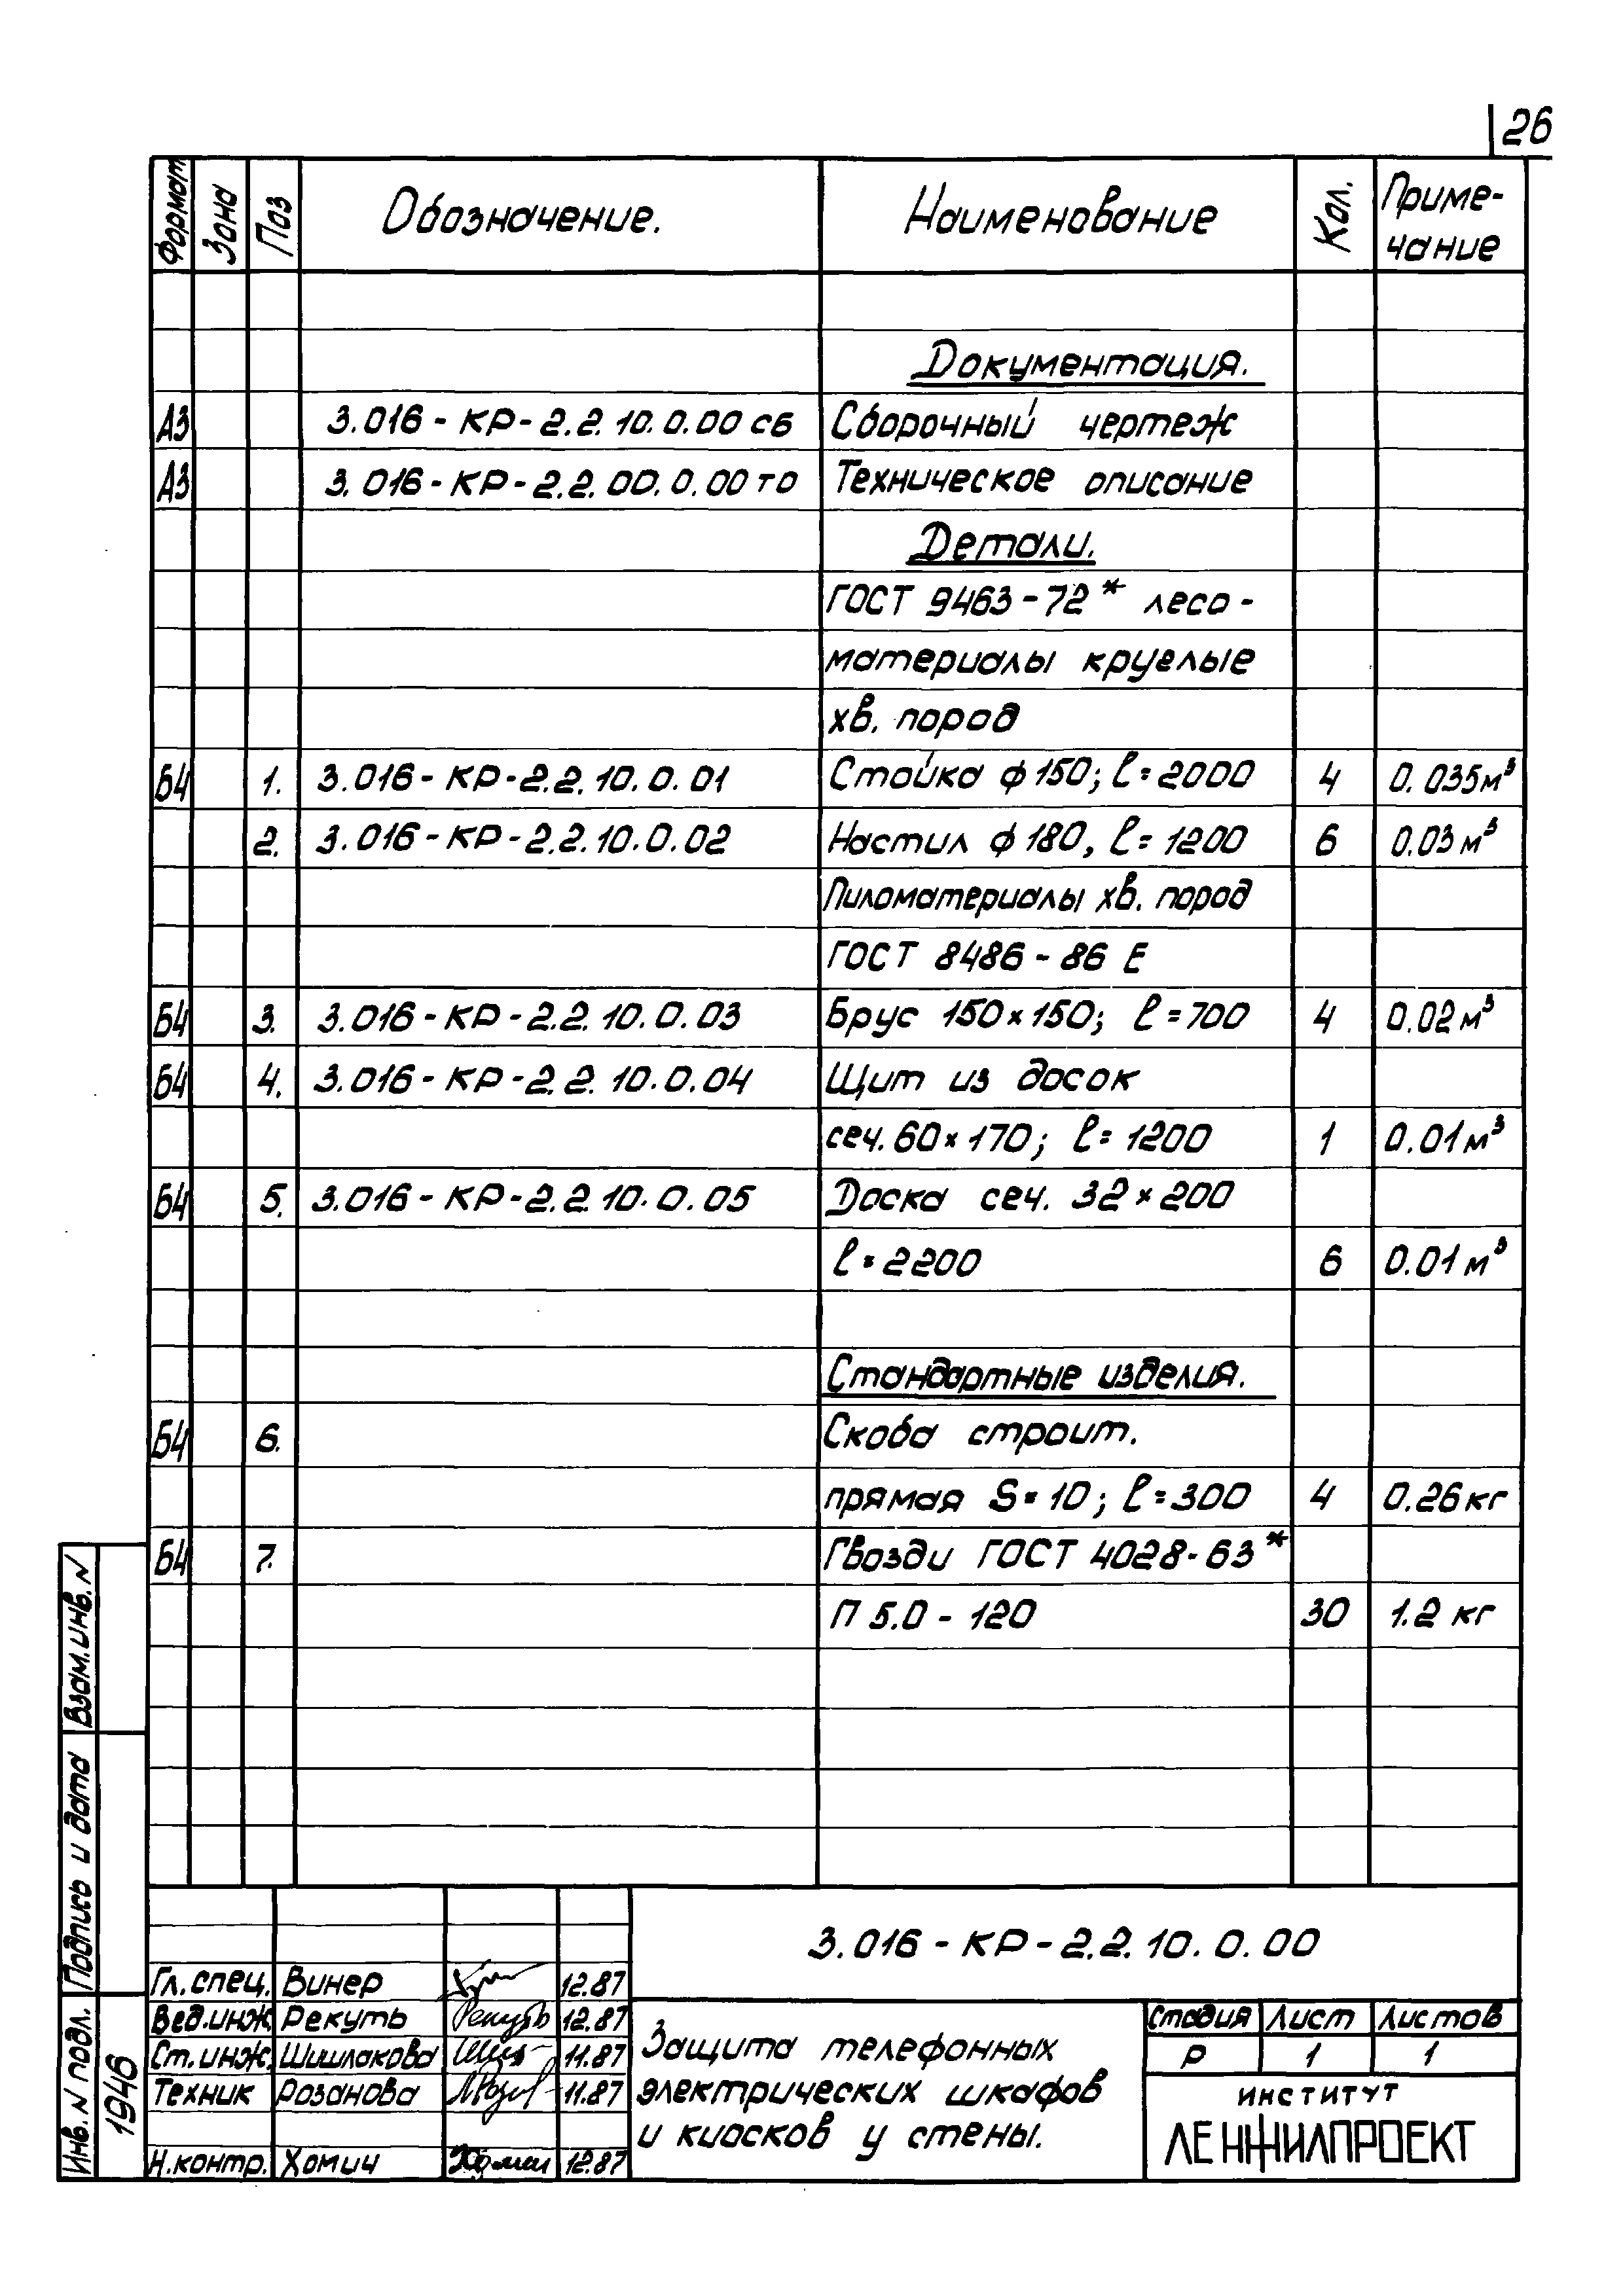 26
Формат Зона Поз Обозначение. Наименование Кол. Приме-
чание
Документация.
А3 3.016-КР-2.2.10.0.00 сб Сборочный чертеж
А3 3.016-КР-2.2.00.0.00 то Техническое описание
Детали.
ГОСТ 9463-72* лесо-
материалы круглые
хв. пород
Б4 1. 3.016-КР-2.2.10.0.01 Стойка ф150; ℓ=2000 4 0.035м³
2. 3.016-КР-2.2.10.0.02 Настил ф180, ℓ=1200 6 0.03м³
Пиломатериалы хв. пород
ГОСТ 8486-86 Е
Б4 3. 3.016-КР-2.2.10.0.03 Брус 150×150; ℓ=700 4 0.02м³
Б4 4. 3.016-КР-2.2.10.0.04 Щит из досок
сеч. 60×170; ℓ=1200 1 0.01м³
Б4 5. 3.016-КР-2.2.10.0.05 Доска сеч. 32×200
ℓ=2200 6 0.01м³
Стандартные изделия.
Б4 6. Скоба строит.
прямая S=10; ℓ=300 4 0.26кг
Б4 7. Гвозди ГОСТ 4028-63*
П 5.0-120 30 1.2 кг
Взам.инв.N
Подпись и дата
Инв.N подл.
1946
3.016-КР-2.2.10.0.00
Гл.спец. Винер 12.87
Вед.инж. Рекуть Рекуть 12.87
Ст.инж. Шишлакова 11.87
Техник Розанова 11.87
Н.контр. Хомич Хомич 12.87
Защита телефонных
электрических шкафов
и киосков у стены.
Стадия Лист Листов
Р 1 1
ИНСТИТУТ
ЛЕНЖИЛПРОЕКТ